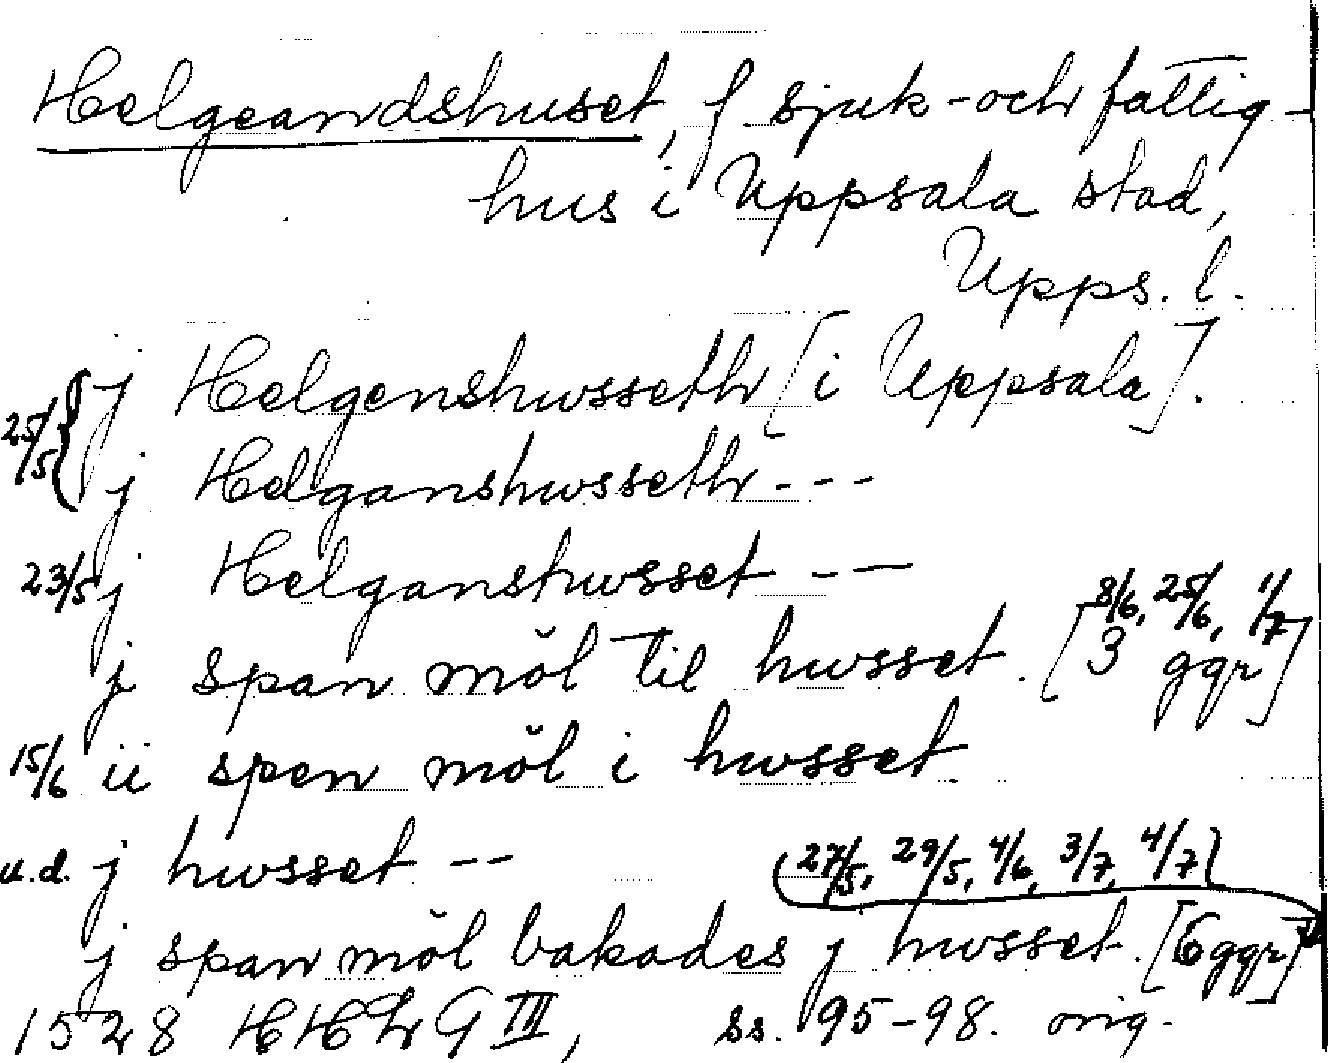 Helgeandshuset, f sjuk- och fattig-
hus i Uppsala stad,
Upps. l.
25/5 { j Helgenshwsseth [i Uppsala].
j Helganshwsseth ---
23/5 j Helganshwsset ---
8/6, 25/6, 1/7
j span möl til hwsset. [3 ggr]
15/6 ii spen möl i hwsset.
u.d. j hwsset --
(27/5, 29/5, 4/6, 3/7, 4/7)
j span möl bakades j hwsset. [6 ggr]
1528 G III, ss. 95-98. orig.